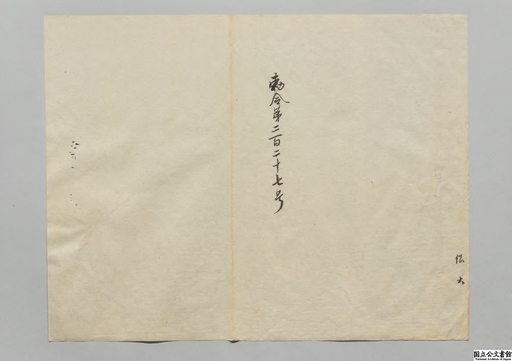 勅令第二百二十七号
国立公文書館
National Archives of Japan